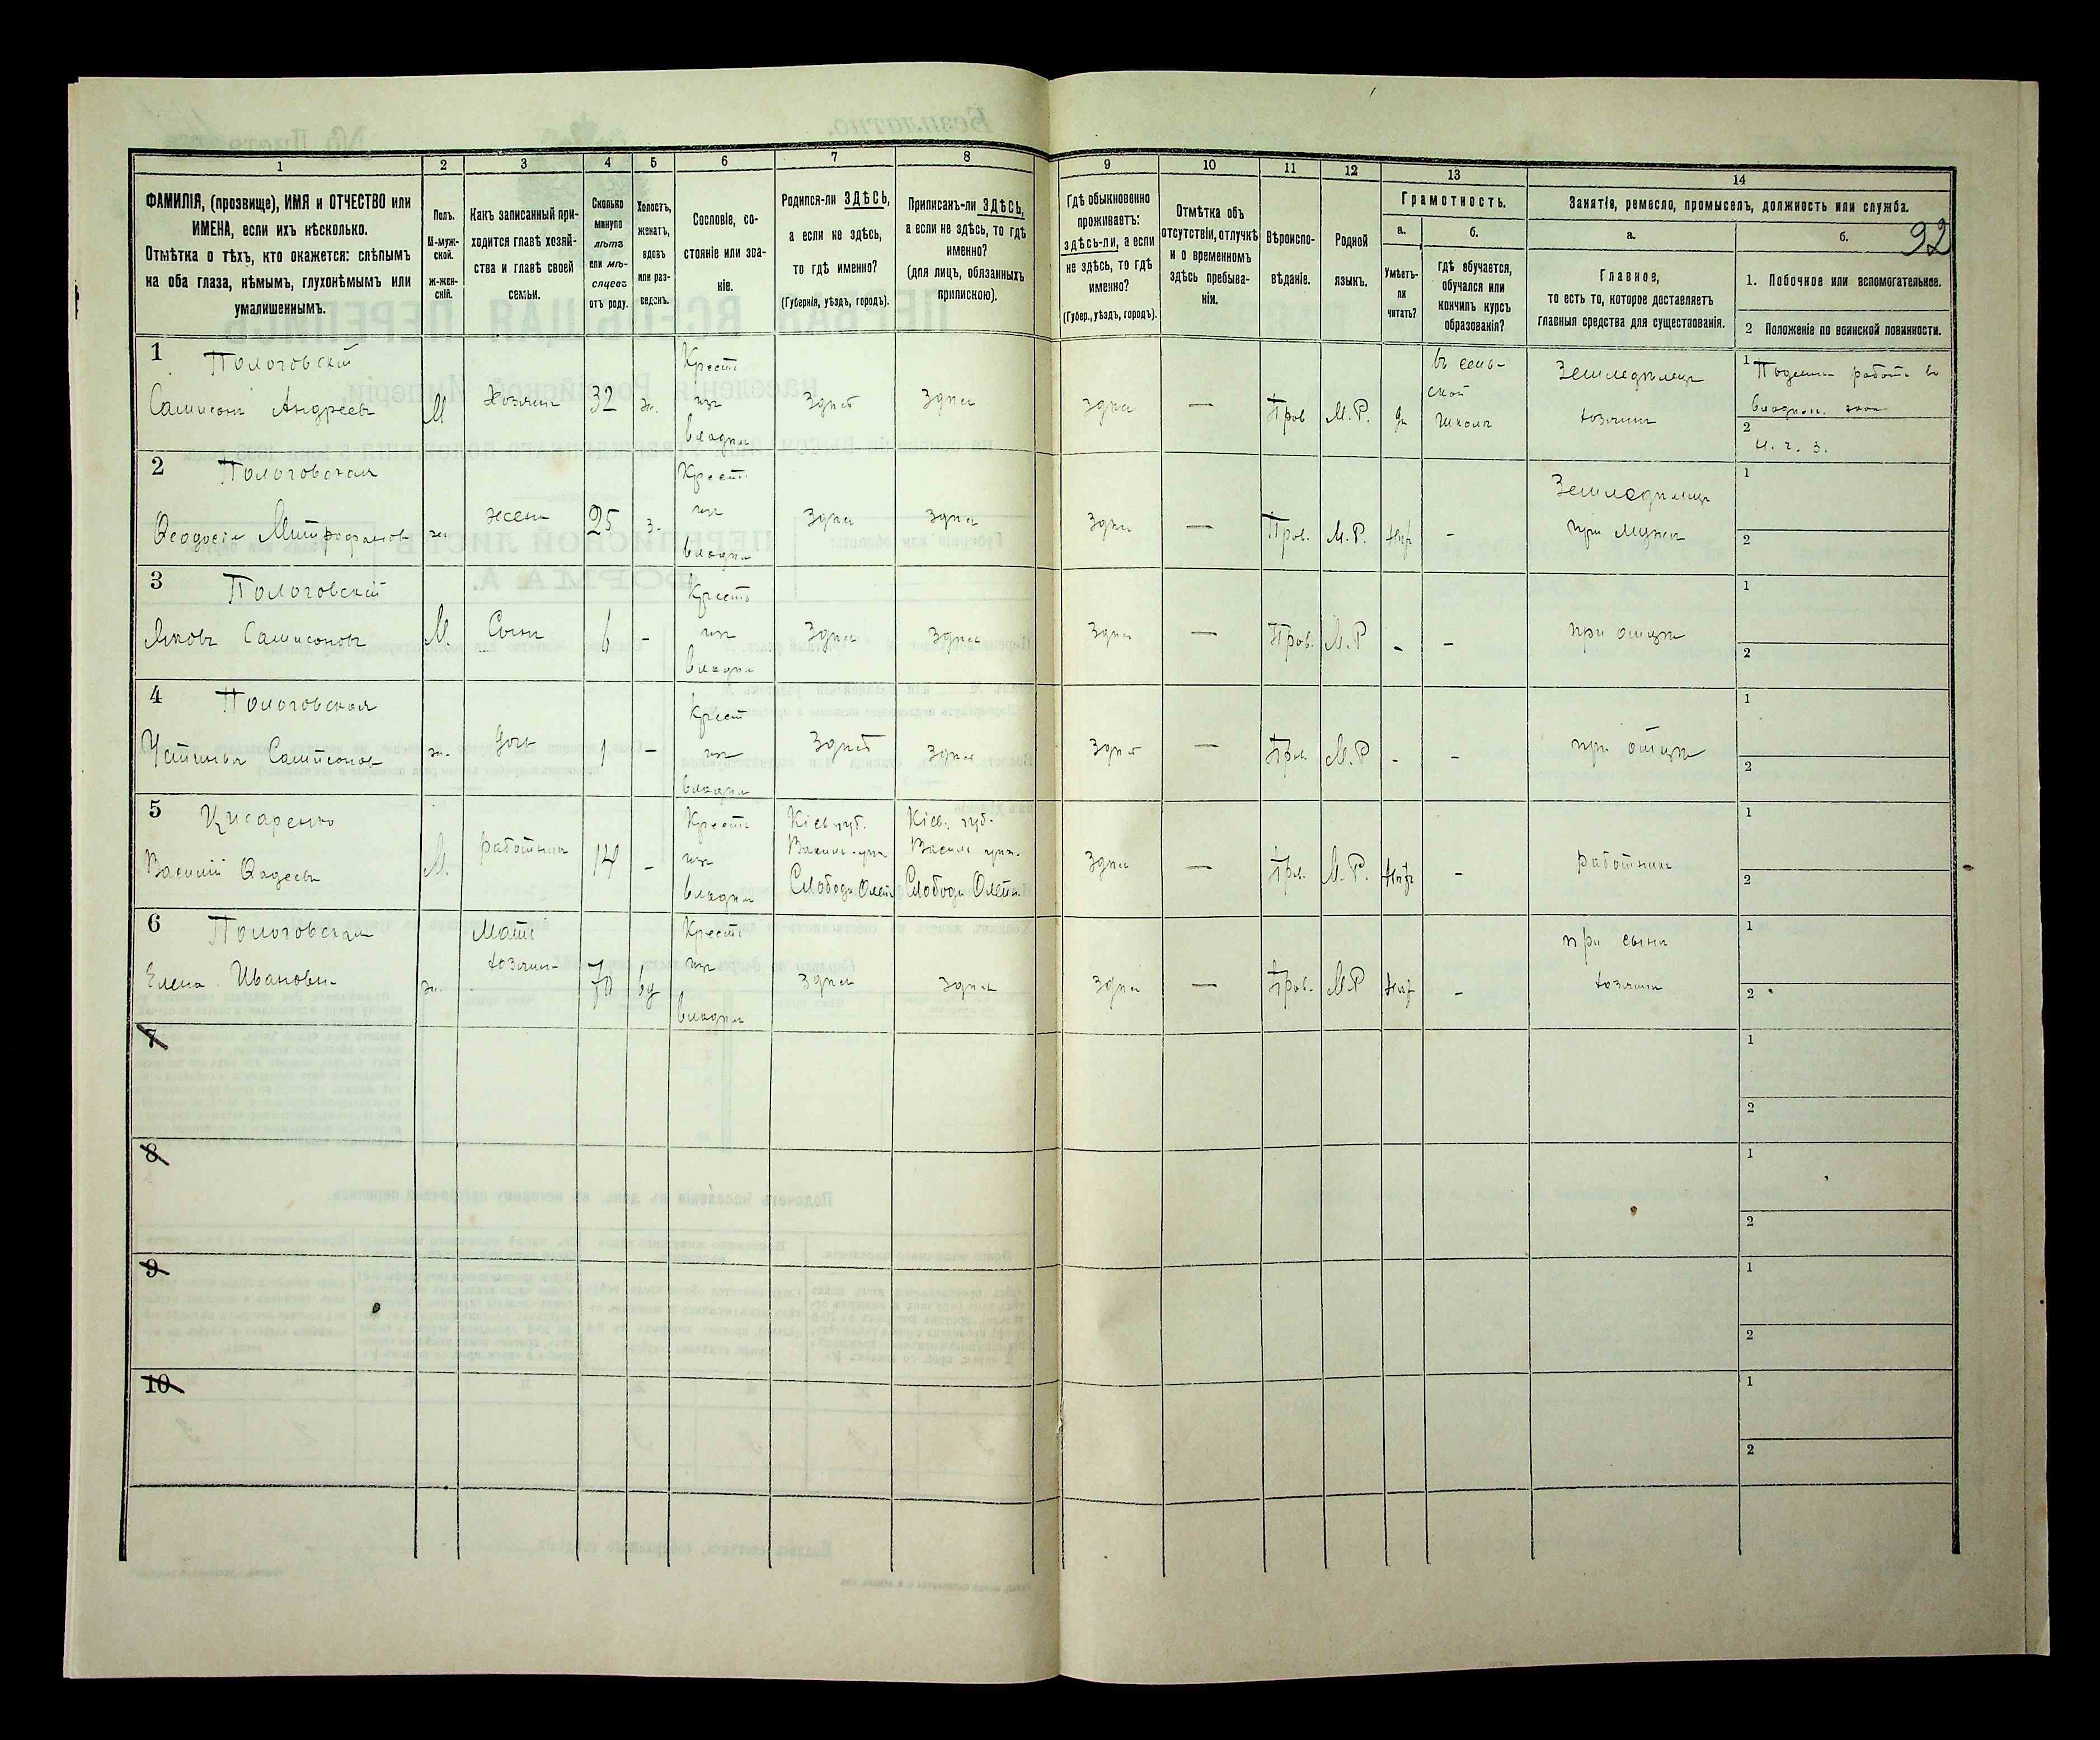 Безплатно.
№ Листа
92
1 2 3 4 5 6 7 8 9 10 11 12 13 14
ФАМИЛІЯ, (прозвище), ИМЯ и ОТЧЕСТВО или
ИМЕНА, если ихъ нѣсколько.
Отмѣтка о тѣхъ, кто окажется: слѣпымъ
на оба глаза, нѣмымъ, глухонѣмымъ или
умалишеннымъ.
Полъ.
М-муж-
ской.
ж-жен-
скій.
Какъ записанный при-
ходится главѣ хозяй-
ства и главѣ своей
семьи.
Сколько
минуло
лѣтъ
или мѣ-
сяцевъ
отъ роду.
Холостъ,
женатъ,
вдовъ
или раз-
веденъ.
Сословіе, со-
стояніе или зва-
ніе.
Родился-ли ЗДѢСЬ,
а если не здѣсь,
то гдѣ именно?
(Губернія, уѣздъ, городъ).
Приписанъ-ли ЗДѢСЬ,
а если не здѣсь, то гдѣ
именно?
(для лицъ, обязанныхъ
припискою).
Гдѣ обыкновенно
проживаетъ:
здѣсь-ли, а если
не здѣсь, то гдѣ
именно?
(Губер., уѣздъ, городъ).
Отмѣтка объ
отсутствіи, отлучкѣ
и о временномъ
здѣсь пребыва-
ніи.
Вѣроиспо-
вѣданіе.
Родной
языкъ.
Грамотность.
а.
Умѣетъ-
ли
читать?
б.
гдѣ обучается,
обучался или
кончилъ курсъ
образованія?
Занятіе, ремесло, промыселъ, должность или служба.
а.
Главное,
то есть то, которое доставляетъ
главныя средства для существованія.
б.
1. Побочное или вспомогательное.
2 Положеніе по воинской повинности.
1 Пологовскій
Самсонъ Андреевъ
М
Хозяинъ
32
ж.
Крест.
изъ
владѣл
здѣсь
здѣсь
здѣсь
—
Прав
М. Р.
да
въ сель-
ской
школѣ
Земледѣлецъ
хозяинъ
1
2
ч. г. з.
2 Пологовская
Ѳеодосія Митрофанов
ж.
жена
25
з.
Крест.
изъ
владѣл
здѣсь
здѣсь
здѣсь
—
Прав.
М. Р.
нѣт
-
Земледѣлецъ
при мужѣ
1
2
3 Пологовскій
Яковъ Самсоновъ
М.
Сынъ
6
-
Крестъ
изъ
владѣл
здѣсь
здѣсь
здѣсь
—
Прав.
М. Р
-
-
при отцѣ
1
2
4 Пологовская
Устинья Самсонов
ж.
дочь
1
-
Крест
изъ
владѣл
здѣсь
здѣсь
здѣсь
—
Прав.
М. Р
-
-
при отцѣ
1
2
5 Цисаренко
Василій Ѳадеевъ
М.
работникъ
14
-
Крестъ
изъ
владѣл
Кіев. губ.
Васильк. уѣз.
Слобода
Кіев. губ.
Васильк. уѣз.
Слобода
здѣсь
—
Прав.
М. Р.
нѣт
-
работникъ
1
2
6 Пологовская
Елена Ивановна
ж.
Мать
хозяина
70
вд
Крестъ
изъ
владѣл
здѣсь
здѣсь
здѣсь
—
Прав.
М. Р
нѣт
-
при сынѣ
хозяинѣ
1
2
7
1
2
8
1
2
9
1
2
10
1
2